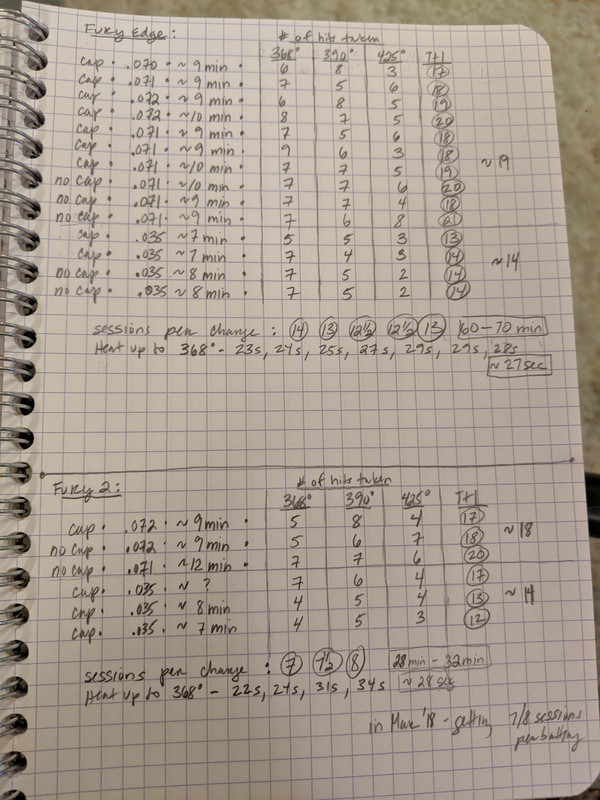 Fury Edge:
# of hits taken
368° 390° 425° Ttl
cap · .070 · ~ 9 min · 6 8 3 17
cap · .071 · ~ 9 min · 7 5 6 18
cap · .072 · ~ 9 min · 6 8 5 19
cap · .072 · ~ 10 min · 8 7 5 20
cap · .071 · ~ 9 min · 7 5 6 18
cap · .071 · ~ 9 min · 9 6 3 18
cap · .071 · ~ 10 min · 7 7 5 19 ~ 19
no cap · .071 · ~ 10 min · 7 7 6 20
no cap · .071 · ~ 9 min · 7 7 4 18
no cap · .071 · ~ 9 min · 7 6 8 21
cap · .035 ~ 7 min · 5 5 3 13
cap · .035 ~ 7 min · 7 4 3 14 ~ 14
no cap · .035 ~ 8 min · 7 5 2 14
no cap · .035 ~ 8 min · 7 5 2 14
sessions per change : 14 13 12½ 12½ 13 60-70 min
Heat up to 368° - 23s, 24s, 25s, 27s, 29s, 29s, 28s
~ 27 sec
Fury 2:
# of hits taken
368° 390° 425° Ttl
cap · .072 · ~ 9 min · 5 8 4 17
no cap · .072 · ~ 9 min · 5 6 7 18 ~ 18
no cap · .071 · ~ 12 min · 7 7 6 20
cap · .035 ~ ? 7 6 4 17
cap · .035 ~ 8 min 4 5 4 13 ~ 14
cap · .035 ~ 7 min 4 5 3 12
sessions per change : 7 7½ 8 28 min - 32 min
Heat up to 368° - 22s, 24s, 31s, 34s ~ 28 sec
in Mar '18 - getting 7/8 sessions
per battery